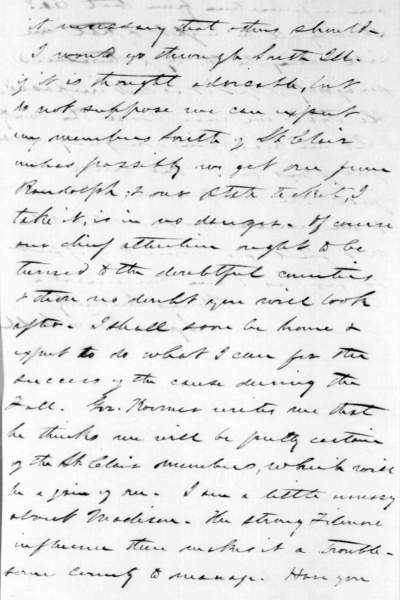 it necessary that others should.
I would go through South Ill.
if it is thought advisable, but
do not suppose we can expect
any members South of St Clair
unless possibly we get one from
Randolph; & our State ticket, I
take it, is in no danger. Of course
our chief attention ought to be
turned to the doubtful counties
& them no doubt you will look
after. I shall soon be home &
expect to do what I can for the
success of the cause during the
Fall. Gov. Koerner writes me that
he thinks we will be pretty certain
of the St Clair members, which will
be a gain of one. I am a little uneasy
about Madison. The strong Filmore
influence there makes it a trouble-
some county to manage. Have you